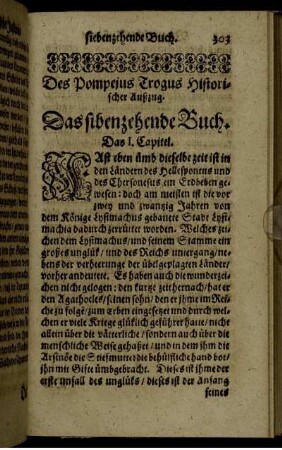 siebenzehende Buch. 303
Des Pompejus Trogus Histori-
scher Außzug.
Das sibenzehende Buch.
Das I. Capitel.
FAst eben ümb dieselbe zeit ist in
den Ländern des Hellespontus und
des Chersonesus ein Erdbeben ge-
wesen: doch am meisten ist die vor
zwey und zwantzig Jahren von
dem Könige Lysimachus gebauete Stadt Lysi-
machia dadurch zerrüttet worden. Welches zei-
chen dem Lysimachus und seinem Stamme ein
grosses unglük / und des Reichs untergang / ne-
bens der verhierunge der übelgeplagten Länder /
vorher andeutete. Es haben auch die wunderzei-
chen nicht gelogen: den kurtze zeit hernach / hat er
den Agathocles / seinen sohn / den er ihme im Rei-
che zu folge / zum Erben eingesetzt und durch wel-
chen er viele Kriege glüklich geführet hatte / nicht
allein über die väterliche / sondern auch über die
menschliche Weise gehasset / und in dem ihm die
Arsinoe die Stiefmutter die behülfliche hand bot /
ihn mit Gifte ümbgebracht. Dieses ist ihme der
erste unfall des unglüks / dieses ist der Anfang
seines